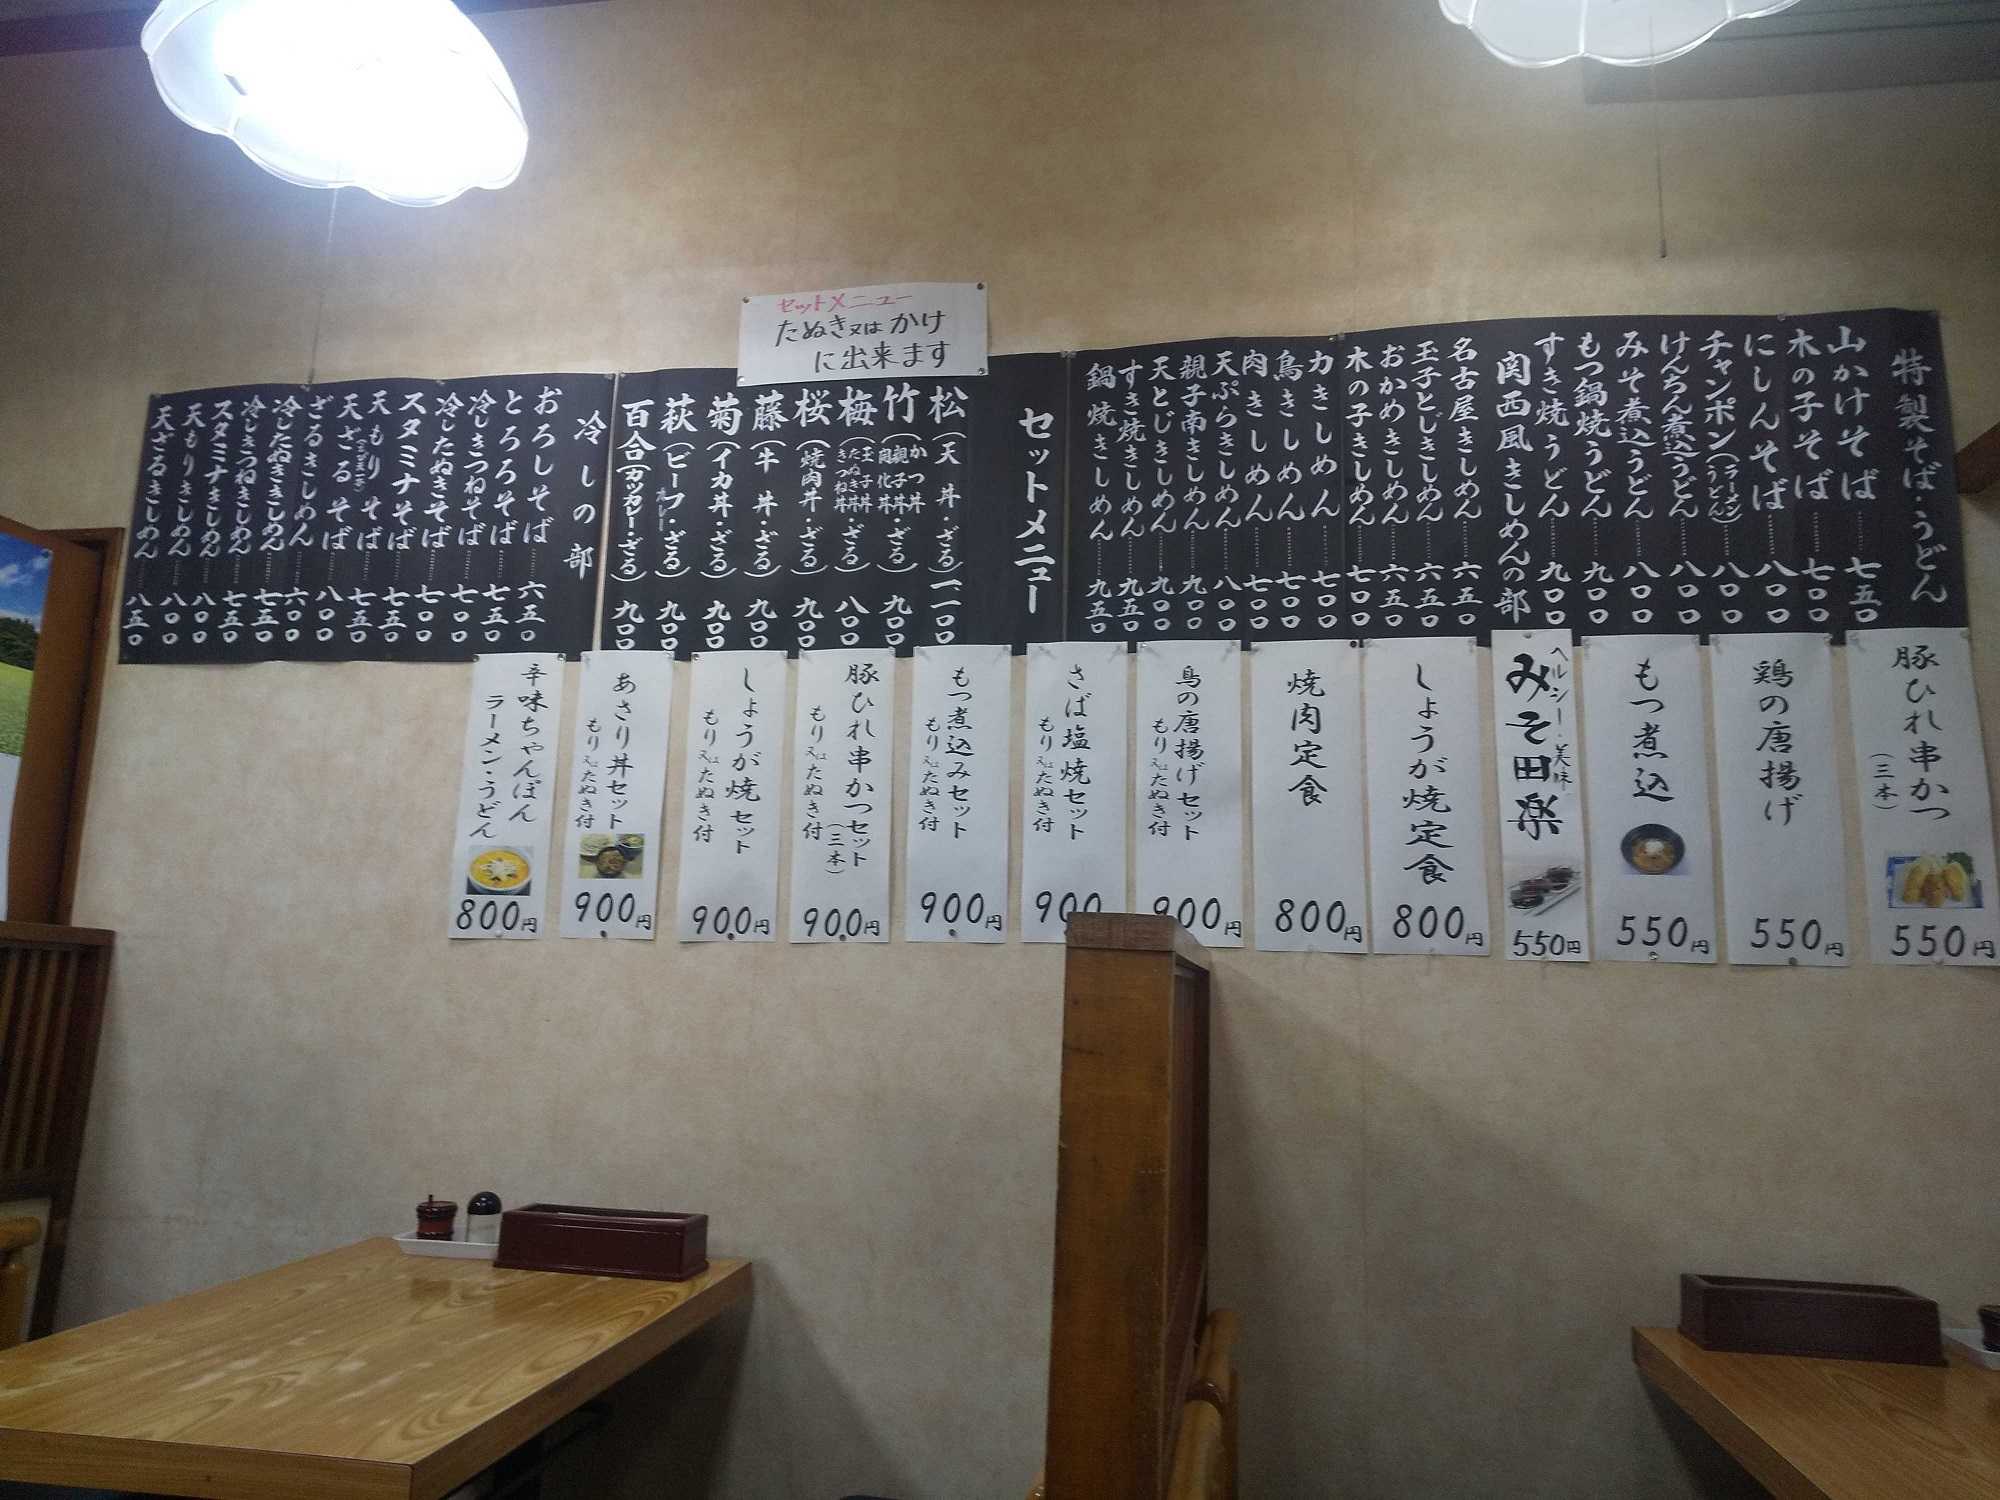 特製そば・うどん
山かけそば……七五〇
木の子そば……七〇〇
にしんそば……八〇〇
チャンポン(ラーメン うどん)……八〇〇
けんちん煮込うどん……八〇〇
みそ煮込うどん……八〇〇
もつ鍋焼うどん……九〇〇
すき焼うどん……九〇〇
関西風きしめんの部
名古屋きしめん……六五〇
玉子とじきしめん……六五〇
おかめきしめん……六五〇
木の子きしめん……七〇〇
力きしめん……七〇〇
鳥きしめん……七〇〇
肉きしめん……七〇〇
天ぷらきしめん……八〇〇
親子南きしめん……九〇〇
天とじきしめん……九〇〇
すき焼きしめん……九五〇
鍋焼きしめん……九五〇
セットメニュー
たぬき又はかけ
に出来ます
セットメニュー
松(天丼・ざる)一一〇〇
竹(かつ丼 親子丼 開化丼・ざる)九〇〇
梅(玉子丼 たぬき丼 きつね丼・ざる)八〇〇
桜(焼肉丼・ざる)九〇〇
藤(牛丼・ざる)九〇〇
菊(イカ丼・ざる)九〇〇
萩(ビーフカレー・ざる)九〇〇
百合(カツカレー・ざる)九〇〇
冷しの部
おろしそば……六五〇
とろろそば……七五〇
冷しきつねそば……七〇〇
冷したぬきそば……七〇〇
スタミナそば……七五〇
天もりそば……七五〇
天ざるそば……八〇〇
ざるきしめん……六〇〇
冷したぬききしめん……七五〇
冷しきつねきしめん……七五〇
スタミナきしめん……八〇〇
天もりきしめん……八〇〇
天ざるきしめん……八五〇
豚ひれ串かつ
(三本)
550円
鶏の唐揚げ
550円
もつ煮込
550円
ヘルシー・美味
みそ田楽
550円
しょうが焼定食
800円
焼肉定食
800円
鳥の唐揚げセット
もり又はたぬき付
900円
さば塩焼セット
もり又はたぬき付
900
もつ煮込みセット
もり又はたぬき付
900円
豚ひれ串かつセット
(三本)
もり又はたぬき付
900円
しょうが焼セット
もり又はたぬき付
900円
あさり丼セット
もり又はたぬき付
900円
辛味ちゃんぽん
ラーメン・うどん
800円